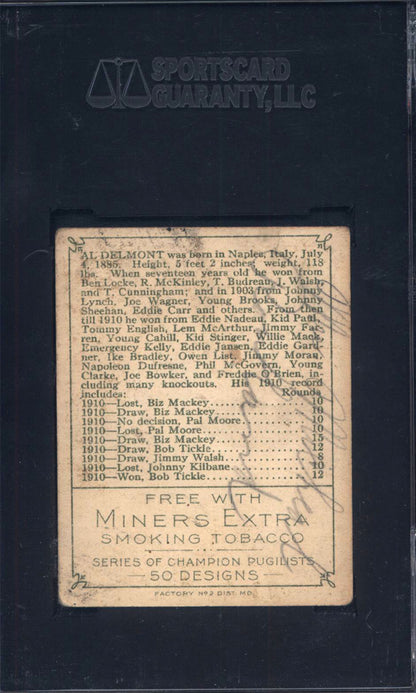 SPORTSCARD
GUARANTY, LLC
AL DELMONT was born in Naples, Italy, July
4, 1885. Height, 5 feet 2 inches; weight, 118
lbs. When seventeen years old he won from
Ben Locke, R. McKinley, T. Budreau, J. Walsh,
and T. Cunningham; and in 1903 from Johnny
Lynch, Joe Wagner, Young Brooks, Johnny
Sheehan, Eddie Carr and others. From then
till 1910 he won from Eddie Nadeau, Kid Paul,
Tommy English, Lem McArthur, Jimmy Far-
ren, Young Cahill, Kid Stinger, Willie Mack,
Emergency Kelly, Eddie Jansen, Eddie Gard-
ner, Ike Bradley, Owen List, Jimmy Moran,
Napoleon Dufresne, Phil McGovern, Young
Clarke, Joe Bowker, and Freddie O'Brien, in-
cluding many knockouts. His 1910 record
includes: Rounds
1910—Lost, Biz Mackey.................. 10
1910—Draw, Biz Mackey................. 10
1910—No decision, Pal Moore........... 10
1910—Lost, Pal Moore................... 10
1910—Draw, Biz Mackey................. 15
1910—Draw, Bob Tickle.................. 12
1910—Draw, Jimmy Walsh............... 8
1910—Lost, Johnny Kilbane............. 10
1910—Won, Bob Tickle................... 12
FREE WITH
MINERS EXTRA
SMOKING TOBACCO
SERIES OF CHAMPION PUGILISTS
—50 DESIGNS—
FACTORY Nº 2 DIST. MD.